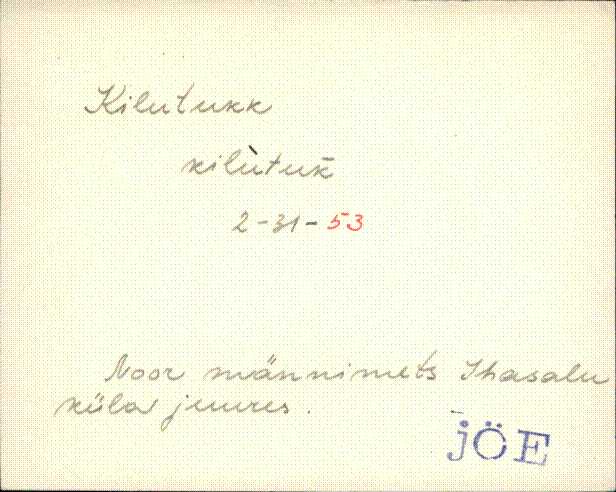 Kilutukk
kilùtuk̄
2-31-53
Noor männimets Ihasalu
küla juures.
JÖE